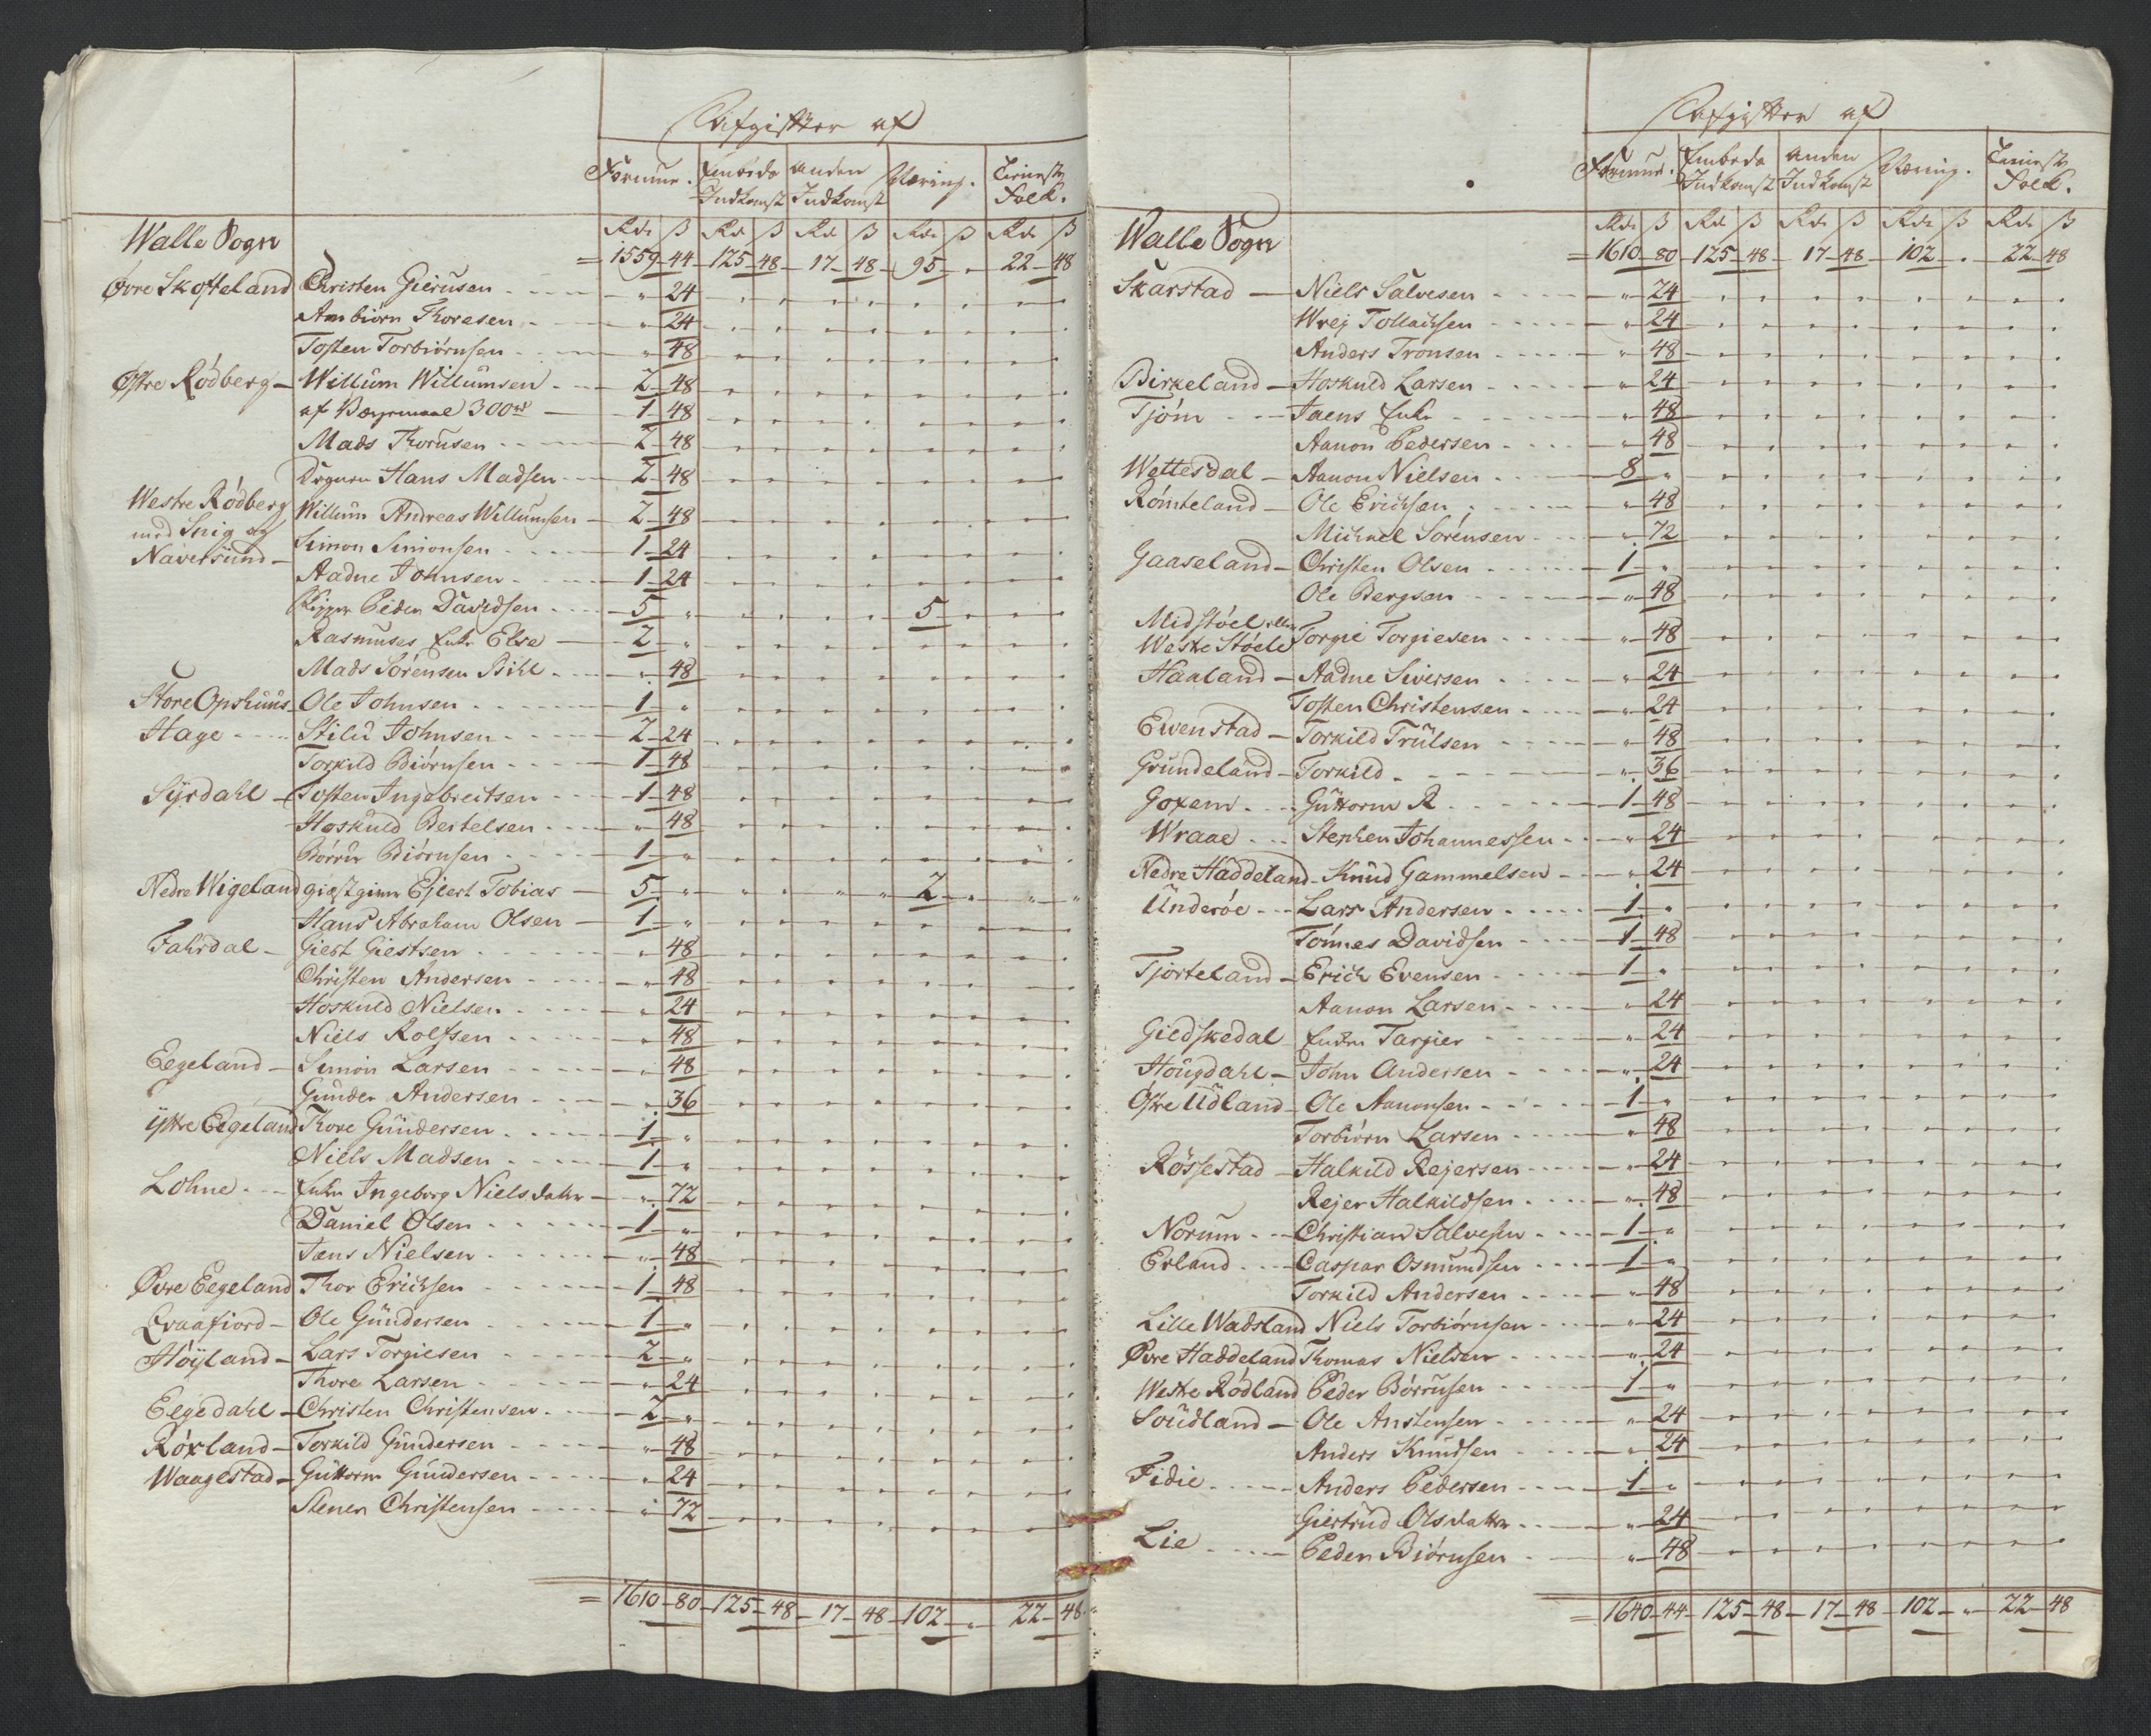 Afgifter af
Formue. Embeds Indkomst Anden Indkomst Næring. Tieneste Folk.
Rdr ß Rdr ß Rdr ß Rdr ß Rdr ß
Walle Sogn = 1559 - 44 - 125 - 48 - 17 - 48 - 95 - " 22 - 48
Øvre Skofteland Christen Gierusen - " 24
Anbiørn Thoresen - " 24
Tosten Torbiørnsen - " 48
Østre Rødberg - Willum Willumsen - 2 - 48
af 300 rd - 1 - 48
Mads Thorusen - 2 - 48
Hans Madsen - 2 - 48
Westre Rødberg Willum Andreas Willumsen - 2 - 48
med Snig og Simon Simonsen - 1 - 24
Naversund - Aadne Johnsen - 1 - 24
Skipper Peder Davidsen - 5 - " 5
Rasmuses Enke Else - 2 - "
Mads Sørensen Bihl - " 48
Store Opshuus - Ole Johnsen - 1 - "
Hage - Stilu Johnsen - 2 - 24
Torkild Biørnsen - 1 - 48
Syrdahl - Tosten Ingebreitsen - 1 - 48
Hoskuld Bertelsen - " 48
Børru Biørnsen - 1 - "
Nedre Wigeland giestgiver Ejlert Tobias - 5 - " 2 - "
Hans Abraham Olsen - 1 - "
Fahrdal - Giest Giestsen - " 48
Christen Andersen - " 48
Hoskuld Nielsen - " 24
Niels Rolfsen - " 48
Eegeland - Simon Larsen - " 48
Gunder Andersen - " 36
Yttre Eegeland Thore Gundersen - 1 - "
Niels Madsen - 1 - "
Lohne - Enke Ingeborg Nielsdatter - " 72
Daniel Olsen - 1 - "
Jens Nielsen - " 48
Øvre Eegeland Thor Erichsen - 1 - 48
Qvaafiord - Ole Gundersen - 1 - "
Høyland - Lars Torgiesen - 2 - "
Thore Larsen - " 24
Eegedahl - Christen Christensen - 2 - "
Røxland - Torkild Gundersen - " 48
Waagestad - Guttorm Gundersen - " 24
Stener Christensen - " 72
= 1610 - 80 - 125 - 48 - 17 - 48 - 102 - " 22 - 48
Afgifter af
Formue. Embeds Indkomst Anden Indkomst Næring. Tieneste Folk.
Rdr ß Rdr ß Rdr ß Rdr ß Rdr ß
Walle Sogn = 1610 - 80 - 125 - 48 - 17 - 48 - 102 - " 22 - 48
Skarstad - Niels Salvesen - " 24
Wrej Tollachsen - " 24
Anders Tronsen - " 48
Birkeland - Hoskuld Larsen - " 24
Tjöm - Jaens Enke - " 48
Aanon Pedersen - " 48
Wattesdal - Aanon Nielsen - 8 - "
Römteland - Ole Erichsen - " 48
Michael Sörensen - " 72
Gaaseland - Christen Olsen - 1 - "
Ole Bergsen - " 48
Midstöel eller
Westre Stöele Torgie Torgiesen - " 48
Haaland - Aadne Siversen - " 24
Tosten Christensen - " 24
Ewenstad - Torkild Trulsen - " 48
Grundeland - Torkild - " 36
Goxem - Guttorm R - 1 - 48
Wraae - Stephen Johannessen - " 24
Nedre Haddeland - Knud Gammelsen - " 24
Underöe - Lars Andersen - 1 - "
Tönnes Davidsen - 1 - 48
Tjorteland - Erich Evensen - 1 - "
Aanon Larsen - " 24
Giedskedal Enken Targier - " 24
Hougdahl - John Andersen - " 24
Östre Udland - Ole Aanonsen - 1 - "
Torbiörn Larsen - " 48
Rössestad - Halkild Rejersen - " 24
Rejer Halkildsen - " 48
Norum - Christian Salvesen - 1 - "
Erland - Caspar Osmundsen - 1 - "
Torkild Andersen - " 48
Lille Wadsland Niels Torbiörnsen - " 24
Øvre Haddeland Thomas Nielsen - " 24
Westre Rödland Peder Börrusen - 1 - "
Soudland - Ole Anstensen - " 24
Anders Knudsen - " 24
Fidie - Anders Pedersen - 1 - "
Giertrud Olsdatter - " 24
Lie - Peder Biörnsen - " 48
= 1640 - 44 - 125 - 48 - 17 - 48 - 102 - " 22 - 48